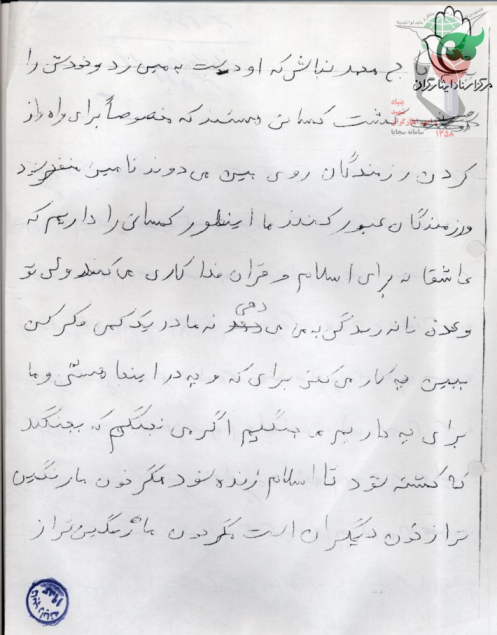 مرکز اسناد ایثارگران
بنیاد
۱۳۵۸
حاج محمد نباش که او دست به مین زد و خودش را
گذشت کسانی هستند که مخصوصاً برای راه باز
کردن رزمندگان روی مین می دوند تا مین منفجر شود
ورزمندگان عبور کنند ما اینطور کسانی را داریم که
عاشقانه برای اسلام و قران فدا کاری می کنند ولی تو
وعده خانه رسیدگی به من می دهی نه مادر یک کمی فکر کن
ببین چه کار می کنی برای که و چه در اینجا هستی و ما
برای چه داریم می جنگیم اگر می نجنگیم که بجنگد
که کشته شود تا اسلام زنده شود مگر خون ما رنگین
تر از خون دیگران است مگر خون ما رنگین تر از